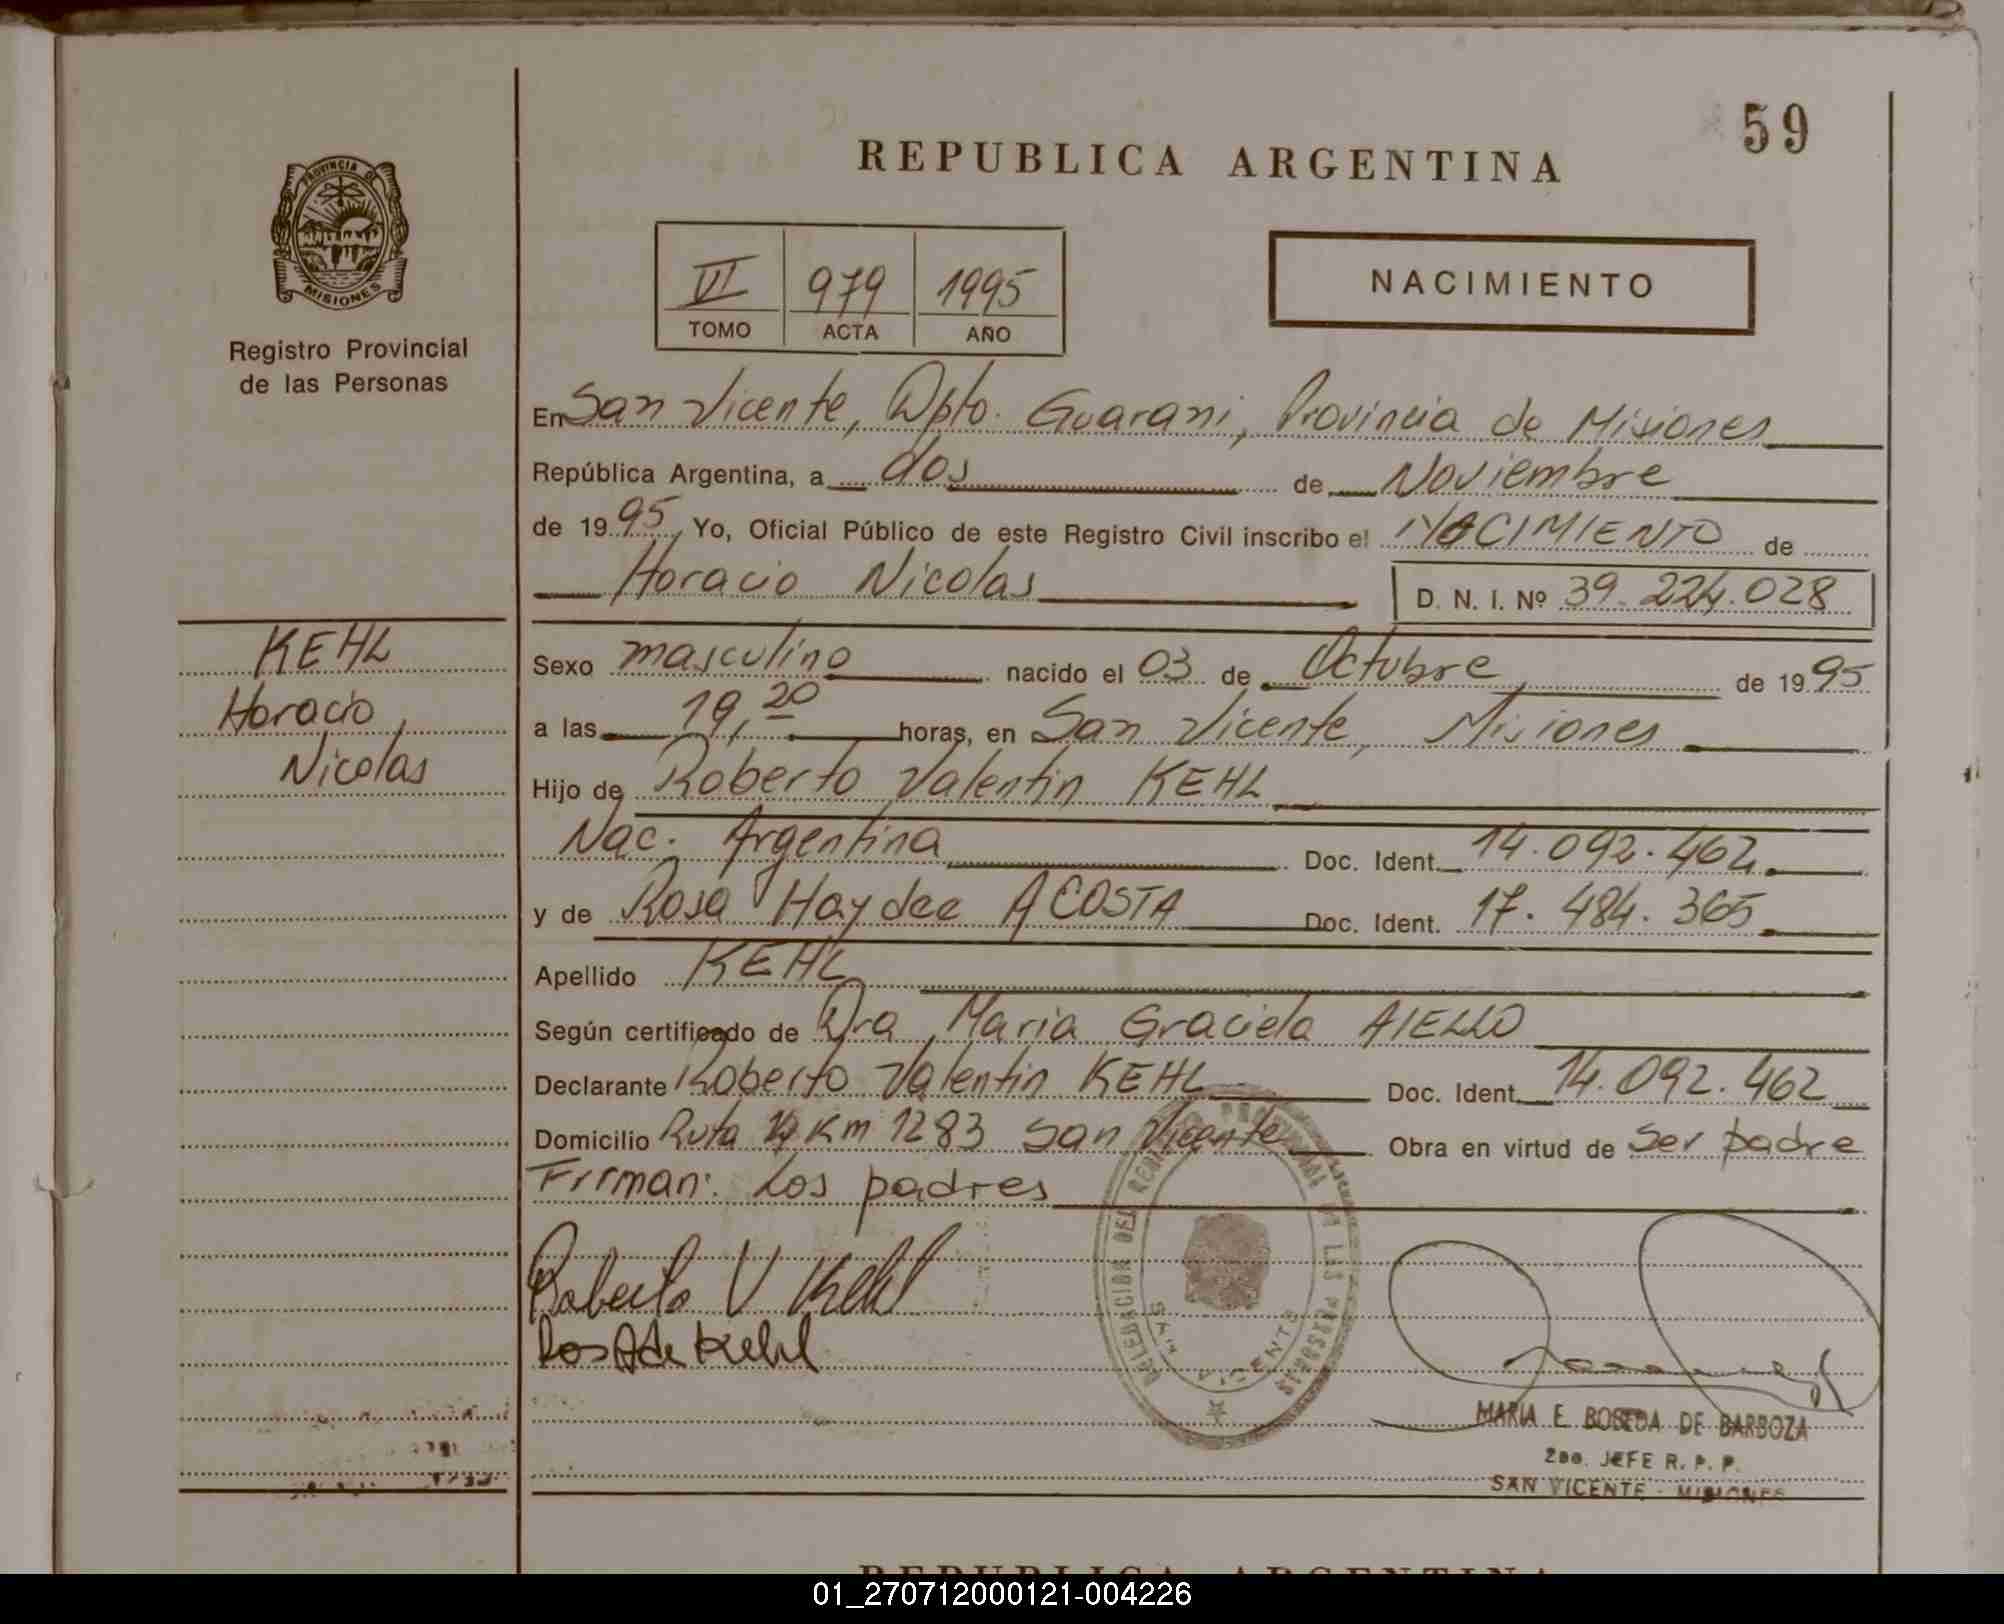 59
REPUBLICA ARGENTINA
PROVINCIA DE
MISIONES
Registro Provincial
de las Personas
VI 979 1995
TOMO ACTA AÑO
NACIMIENTO
En San Vicente, Dpto. Guarani, Provincia de Misiones
República Argentina, a dos de Noviembre
de 1995, Yo, Oficial Público de este Registro Civil inscribo el NACIMIENTO de
Horacio Nicolas D. N. I. Nº 39.224.028
KEHL
Horacio
Nicolas
Sexo masculino nacido el 03 de Octubre de 1995
a las 19,20 horas, en San Vicente, Misiones
Hijo de Roberto Valentin KEHL
Nac. Argentina Doc. Ident. 14.092.462
y de Rosa Haydee ACOSTA Doc. Ident. 17.484.365
Apellido KEHL
Según certificado de Dra Maria Graciela AIELLO
Declarante Roberto Valentin KEHL Doc. Ident. 14.092.462
Domicilio Ruta 14 Km 1283 San Vicente Obra en virtud de ser padre
Firman: Los padres
Roberto V Kehl
Ros A de Kehl
DELEGACION DEL REGISTRO PROVINCIAL DE LAS PERSONAS
SAN VICENTE
MARIA E BOSEDA DE BARBOZA
2do. JEFE R. P. P.
SAN VICENTE - MISIONES
REPUBLICA ARGENTINA
01_270712000121-004226